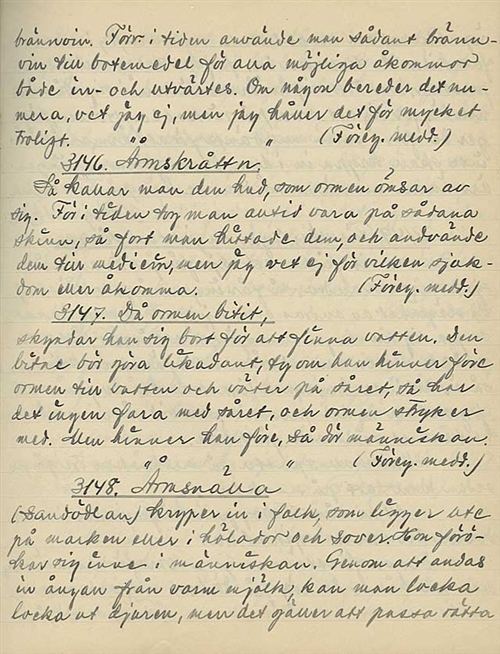 brännvin. Förr i tiden använde man sådant bränn-
vin till botemedel för alla möjliga åkommor
både in- och utvärtes. Om någon bereder det nu-
mera, vet jag ej, men jag håller det för mycket
troligt. " (Föreg. medd.)
3146. Årmskråttn.
Så kallar man den hud, som ormen ömsar av
sig. För i tiden tog man alltid vara på sådana
skinn, så fort man hittade dem, och andvände
dem till medicin, men jag vet ej för vilken sjuk-
dom eller åkomma. (Föreg. medd.)
3147. Då ormen bitit,
skyndar han sig bort för att finna vatten. Den
bitne bör göra likadant, ty om han hinner före
ormen till vatten och väter på såret, så har
det ingen fara med såret, och ormen stryker
med. Men hinner han före, så dör människan.
" (Föreg. medd.)
3148. Årmsnälla
(Sandödlan) kryper in i folk, som ligger ute
på marken eller i hölador och sover. Hon förö-
kar sig inne i människan. Genom att andas
in ångan från varm mjölk, kan man locka
locka ut djuren, men det gäller att passa rätta